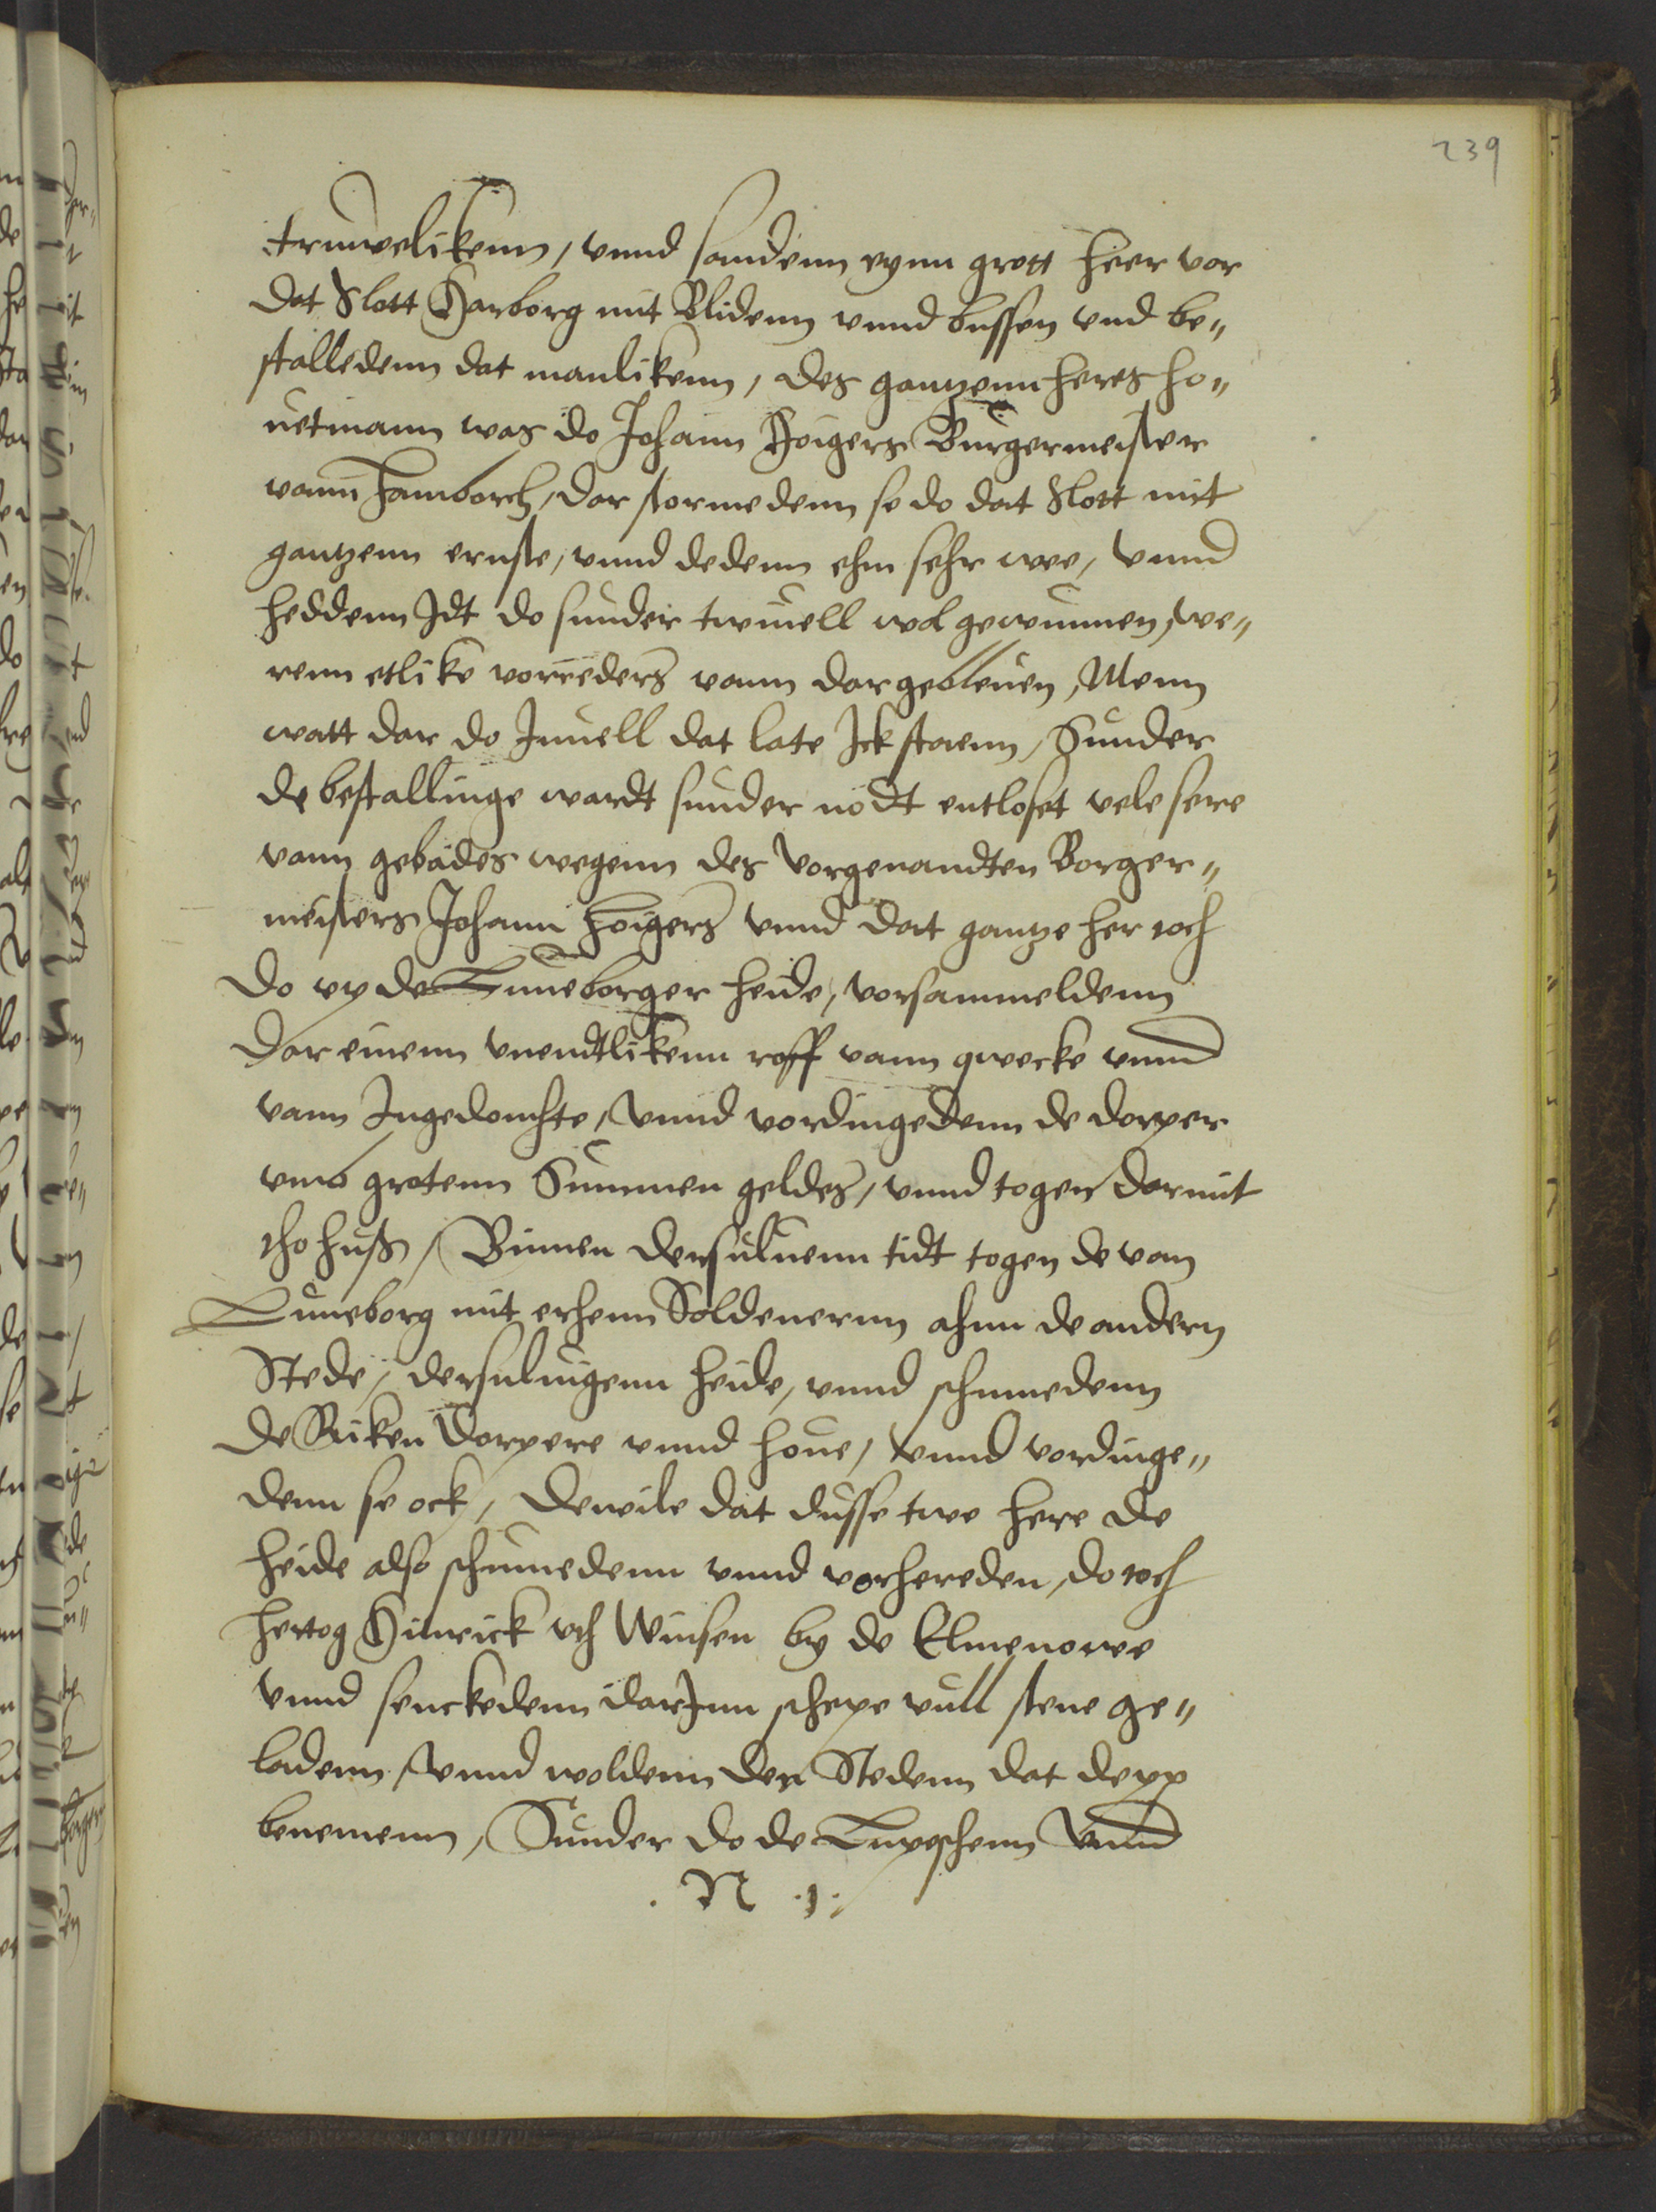 239
truwelikenn, vnnd sandenn eynn grott heer vor
dat Slott Harborg mit Blidenn vnnd bussen vnd be„
stalledenn dat manlikenn, des gantzenn heres ho„
uetmann was do Johann Hoigers Burgermeister
vann Hamborch, dar stormedenn se do dat Slott mit
gantzenn ernste, vnnd dedenn ehm sehr wee, vnnd
heddenn Jdt do sunder twiuell wol gewunnen, we„
renn etlike vorreders vann dar gebleuen, Menn
watt dar do Jnuell dat late Jck staenn, Sunder
de bestallinge wardt sunder nodt entloset vele sere
vann gebades wegenn des vorgenandten Borger„
meisters Johann Hoigers vnnd dat gantze her toch
do vp de Luneborger heide, vorsammeldenn
dar einenn vnendtlikenn roff vann qwecke vnnd
vann Jngedomhte, vnnd vordingedenn de dorper
vmb grotenn Summen geldes, vnnd togen darmit
tho huß, Binnen dersuluenn tidt togen de van
Luneborg mit erhenn Soldenernn ahnn de andern
Stede, dersuluigenn heide, vnnd schinnedenn
de Riken dorpere vnnd houe, vnnd vordinge„
denn se ock, dewile dat dusse twe here de
heide also schinnedenn vnnd vorhereden, do toch
hertog Hinrick vth Winsen by de Elmenowe
vnnd senckedenn darJnn schepe vull stene ge„
ladenn, vnnd woldenn den Stedenn dat depp
benemenn, Sunder do de Lupschenn vnnd
. N .j.